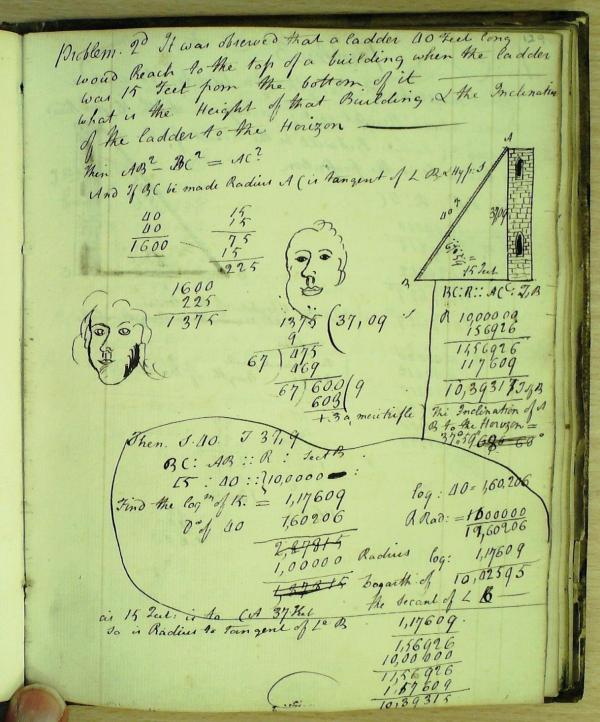 Problem. 2d It was observed that a ladder 40 Feet long
woud Reach to the top of a building when the ladder
was 15 Feet from the bottom of it
what is the Height of that Building & the Inclination
of the ladder to the Horizon
Then AB² – BC² = AC²
And If BC be made Radius AC is tangent of L B & Hyp:
40
40
1600
15
15
75
15
225
1600
225
1375
1375 (37,09
9
67 ) 475
469
67 ) 600 (9
603
+.3 a mere trifle
A
B
37,09
15 Feet
BC : R :: AC : T,B
10,00000
156926
11,56926
117609
10,39317
The Inclination of
B to the Horizon =
Then. S. 40. T 37,9
BC : AB :: R : Sect B
15 : 40 :: 10,0000
Find the logm of 15. = 1,17609
Do of 40 1,60206
1,00000 Radius
log: 40 = 1,60,206
R Rad: = 10,00000
11,60206
log: 1,17609
Logarth of 10,02595
the Secant of L B
as 15 Feet: is to CA 37 Feet
so is Radius to Tangent of Le B
1,17609
1,56926
10,00000
11,56926
1,17609
10,39315